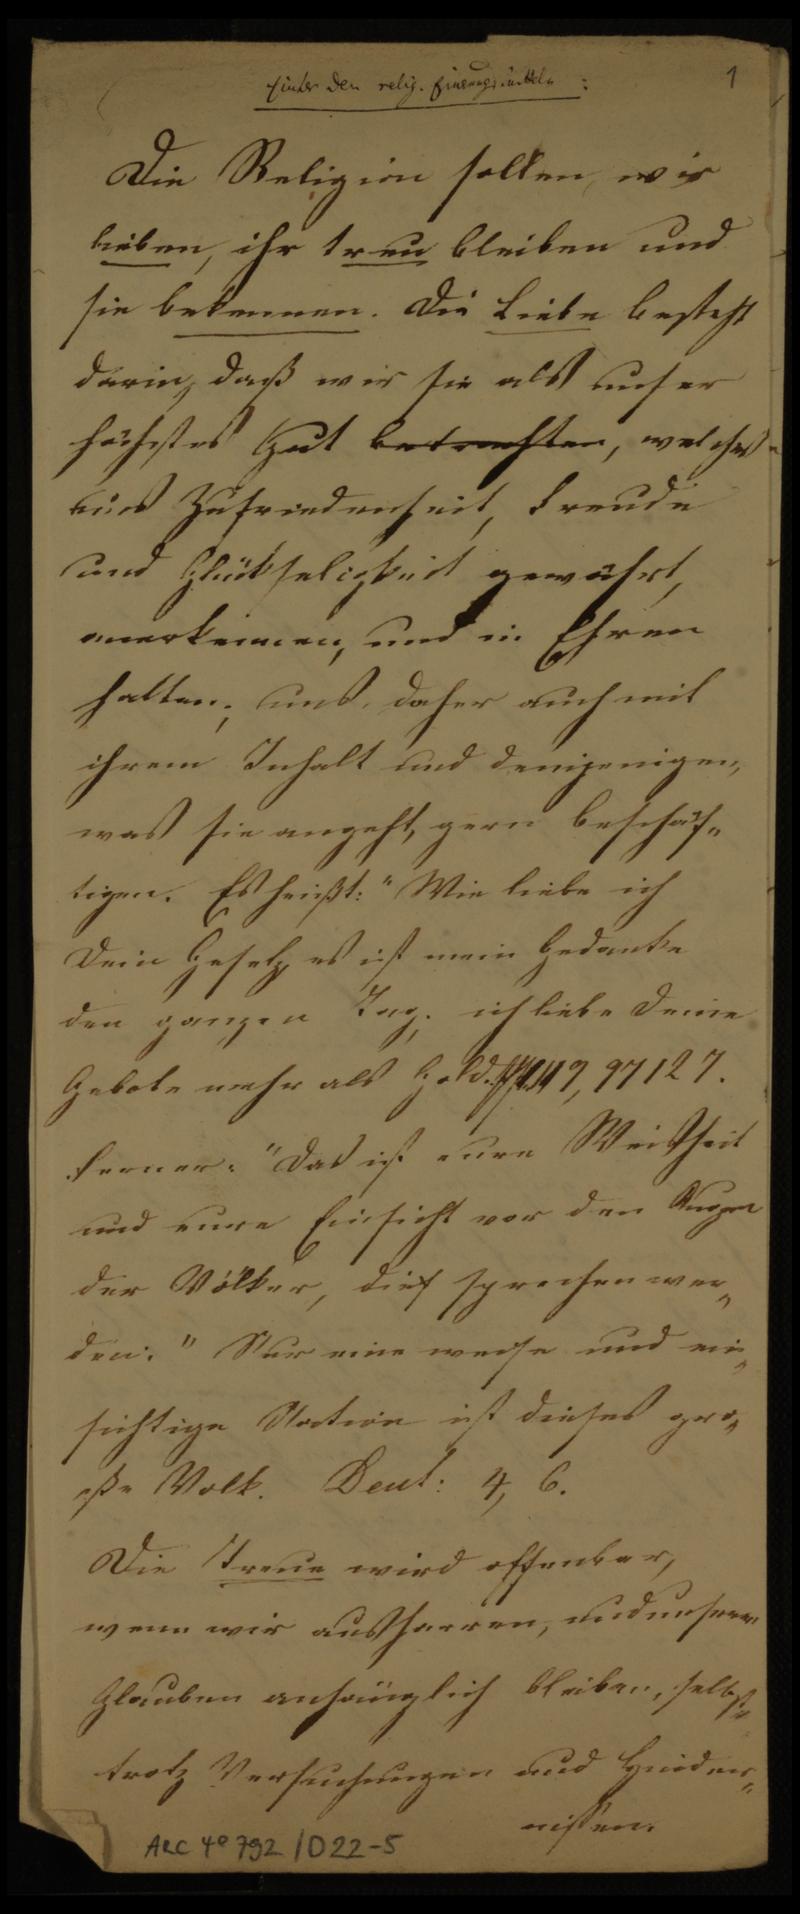 hinter den relig. :
1
Die Religion sollen wir
lieben, ihr treu bleiben und
sie bekennen. Die Liebe besteht
darin, daß wir sie als unser
höchstes Gut betrachten, welches
uns Zufriedenheit, Freude
und Glückseligkeit gewährt,
anerkennen, und in Ehren
halten; uns daher auch mit
ihrem Inhalt und demjenigen,
was sie angeht, gern beschäf„
tigen. Es heißt: "Wie liebe ich
Dein Gesetz, es ist mein Gedanke
den ganzen Tag; ich liebe Deine
Gebote mehr als Gold. Ps. 119, 97 127.
Ferner: "Das ist eure Weisheit
und eure Einsicht vor den Augen
der Völker, die sprechen wer„
den: " Nur eine weise und ein„
sichtige Nation ist dieses gro„
ße Volk. Deut: 4, 6.
Die Treue wird offenbar,
wenn wir ausharren, und unserm
Glauben anhänglich bleiben, selbst
trotz Versuchungen und Hinder„
nissen.
ARC 4° 792 / D22-5